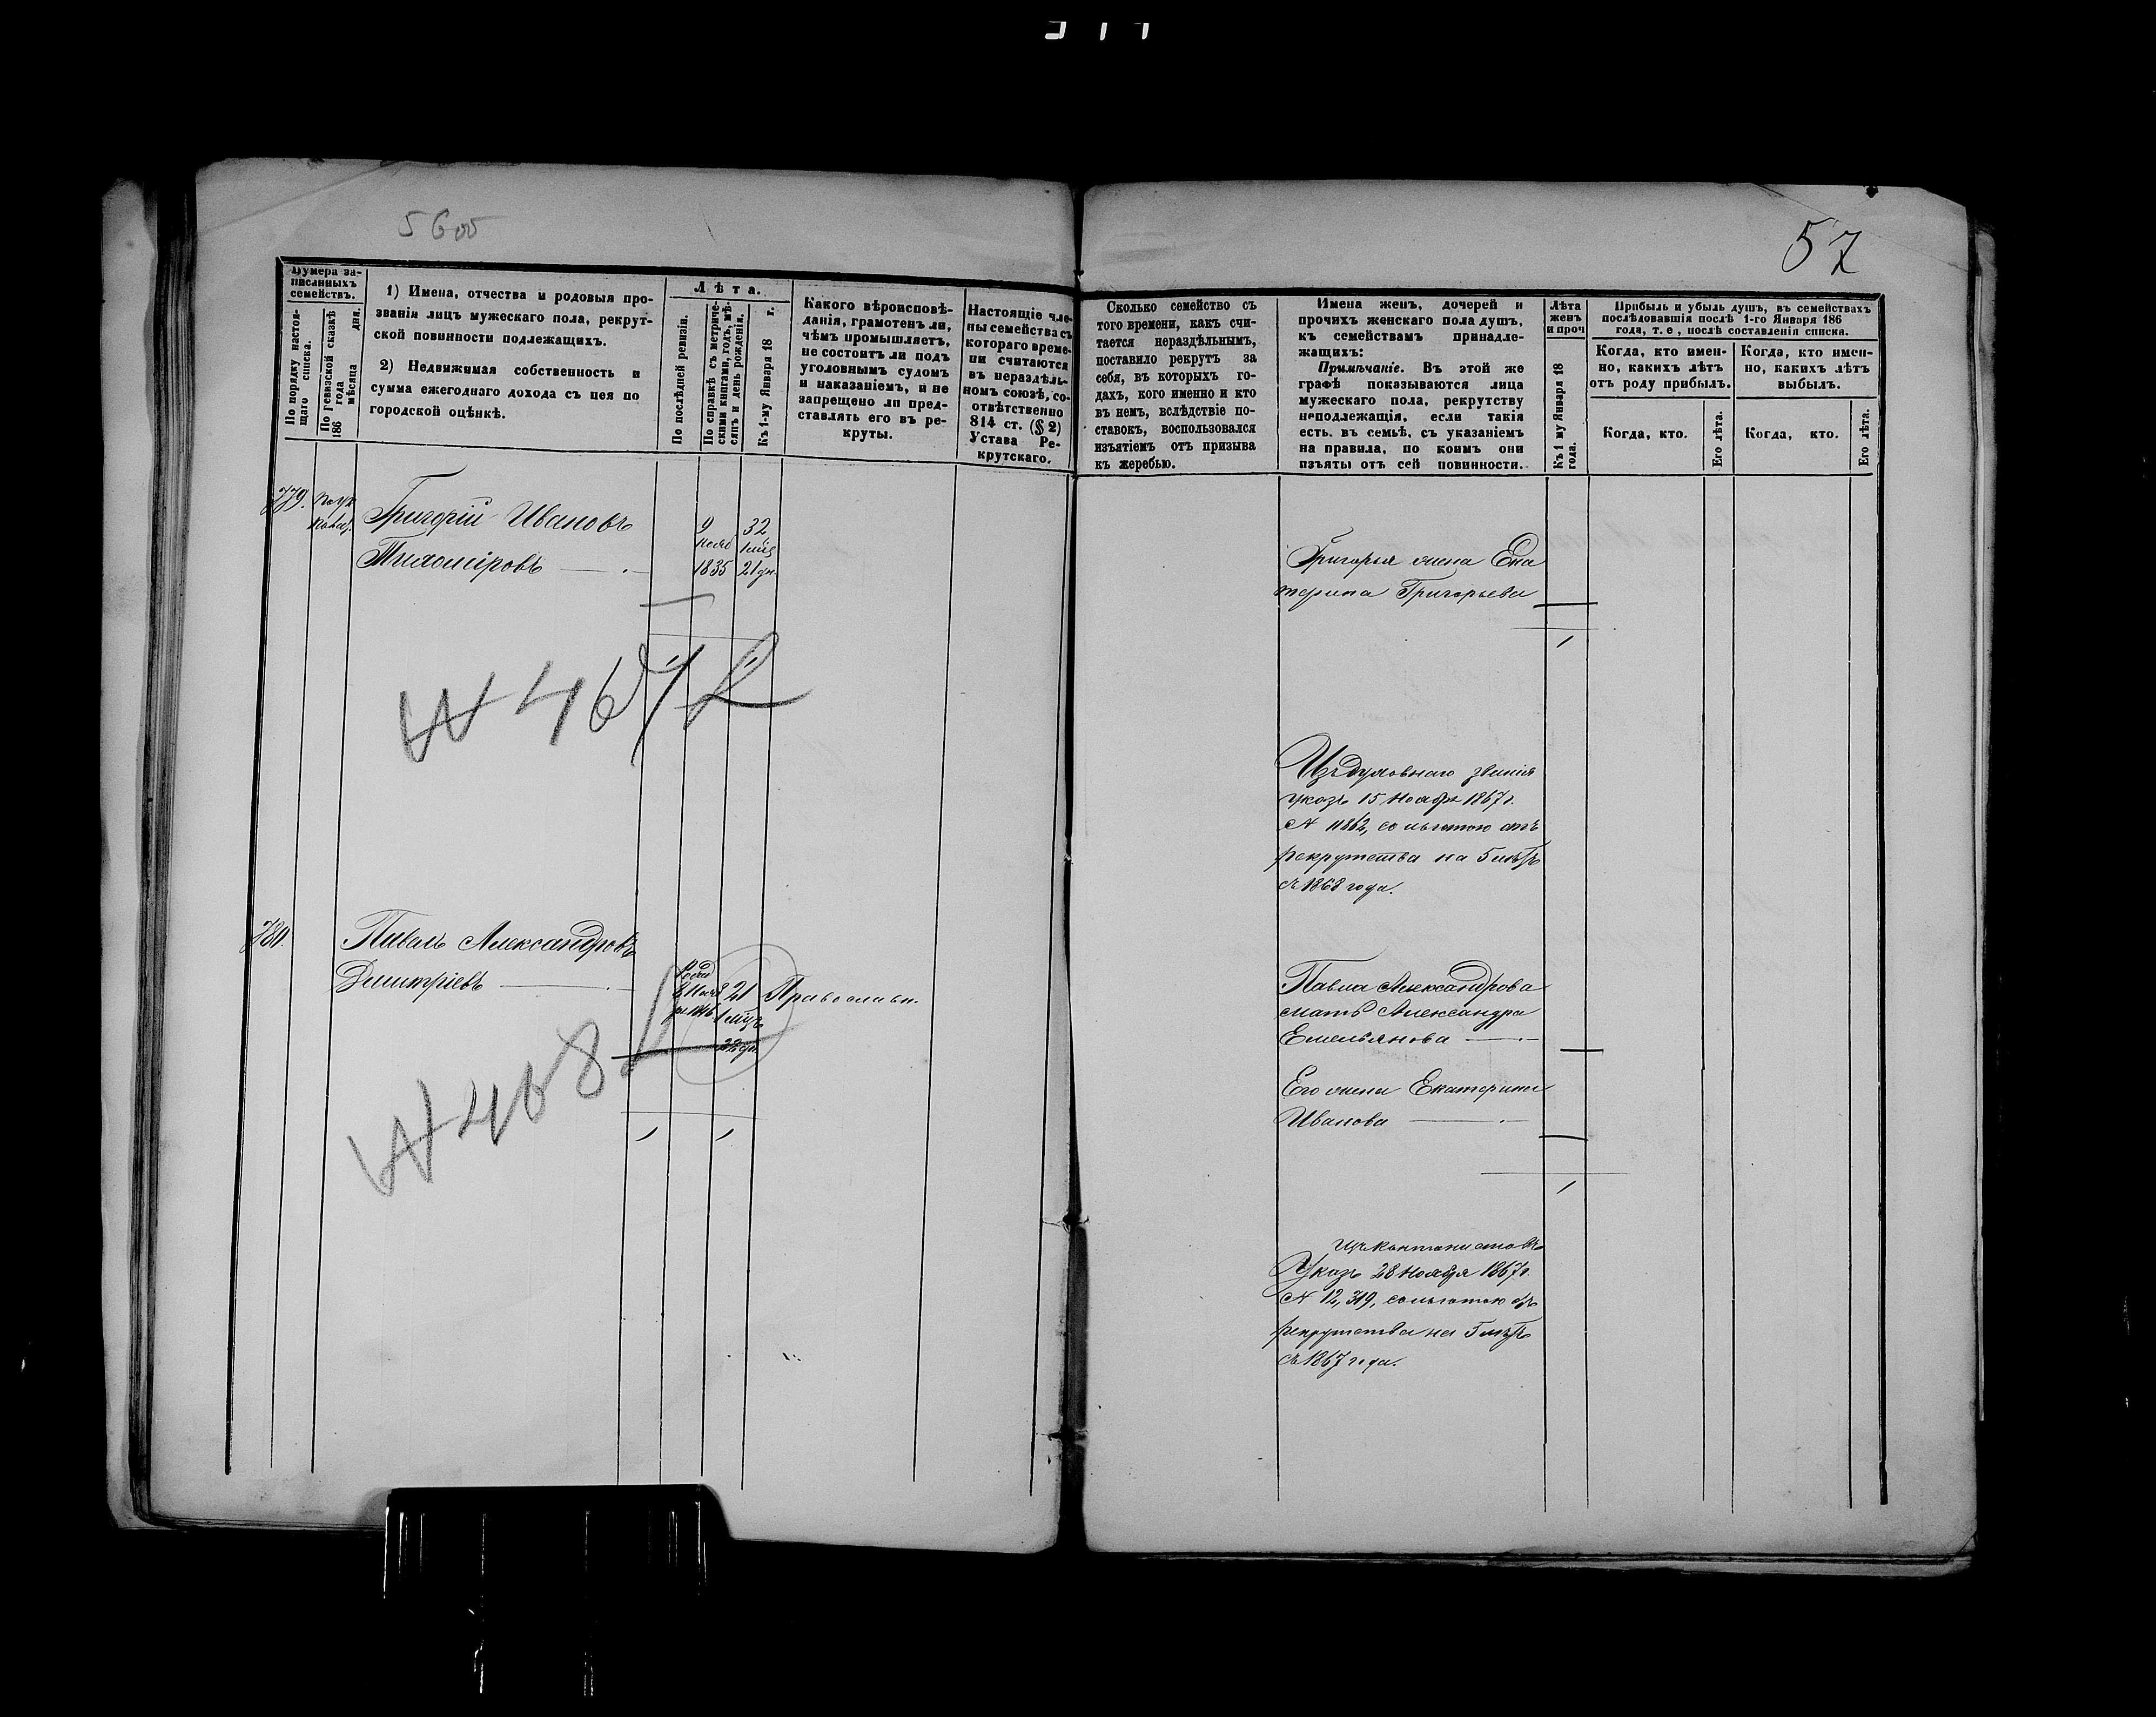 57
Нумера за-
писанныхъ
семействъ.
По порядку настоя-
щаго списка.
По ревизской сказкѣ
186 года
мѣсяца дня.
1) Имена, отчества и родовыя про-
званія лицъ мужескаго пола, рекрут-
ской повинности подлежащихъ.
2) Недвижимая собственность и
сумма ежегоднаго дохода съ нея по
городской оцѣнкѣ.
Лѣта.
По послѣдней ревизіи.
По справкѣ съ метриче-
скими книгами, годъ, мѣ-
сяцъ и день рожденія.
Къ 1-му Января 18 г.
Какого вѣроисповѣ-
данія, грамотенъ ли,
чѣмъ промышляетъ,
не состоитъ ли подъ
уголовнымъ судомъ
и наказаніемъ, и не
запрещено ли пред-
ставлять его въ ре-
круты.
Настоящіе чле-
ны семейства съ
котораго време-
ни считаются
въ нераздѣль-
номъ союзѣ, со-
отвѣтственно
814 ст. (§ 2)
Устава Ре-
крутскаго.
Сколько семейство съ
того времени, какъ счи-
тается нераздѣльнымъ,
поставило рекрутъ за
себя, въ которыхъ го-
дахъ, кого именно и кто
въ немъ, вслѣдствіе по-
ставокъ, воспользовался
изъятіемъ отъ призыва
къ жеребью.
Имена женъ, дочерей и
прочихъ женскаго пола душъ,
къ семействамъ принадле-
жащихъ:
Примѣчаніе. Въ этой же
графѣ показываются лица
мужескаго пола, рекрутству
неподлежащія, если такія
есть въ семьѣ, съ указаніемъ
на правила, по коимъ они
изъяты отъ сей повинности.
Лѣта
женъ
и проч
Къ 1 му Января 18
года.
Прибыль и убыль душъ, въ семействахъ
послѣдовавшія послѣ 1-го Января 186
года, т. е, послѣ составленія списка.
Когда, кто имен-
но, какихъ лѣтъ
отъ роду прибылъ.
Когда, кто имен-
но, какихъ лѣтъ
выбылъ.
Когда, кто.
Его лѣта.
Когда, кто.
Его лѣта.
779.
Григорій Ивановъ
Тихоміровъ
9
Нояб
1835
32
1 мѣс
21 дн.
Григорья жена Ека
терина Григорьева
1
Изъ духовнаго званія
указъ 15 Ноября 1867 г.
№ 11862, со льготою отъ
рекрутства на 5 лѣтъ
съ 1868 года.
780.
Павелъ Александровъ
Дмитріевъ
21
1 мѣсц
22 дн.
Православн.
1 1
Павла Александрова
мать Александра
Емельянова
Его жена Екатерина
Иванова
1
Изъ Кантонистовъ
Указъ 28 Ноября 1867 г.
№ 12,319, со льготою отъ
рекрутства на 5 лѣтъ
съ 1867 года.